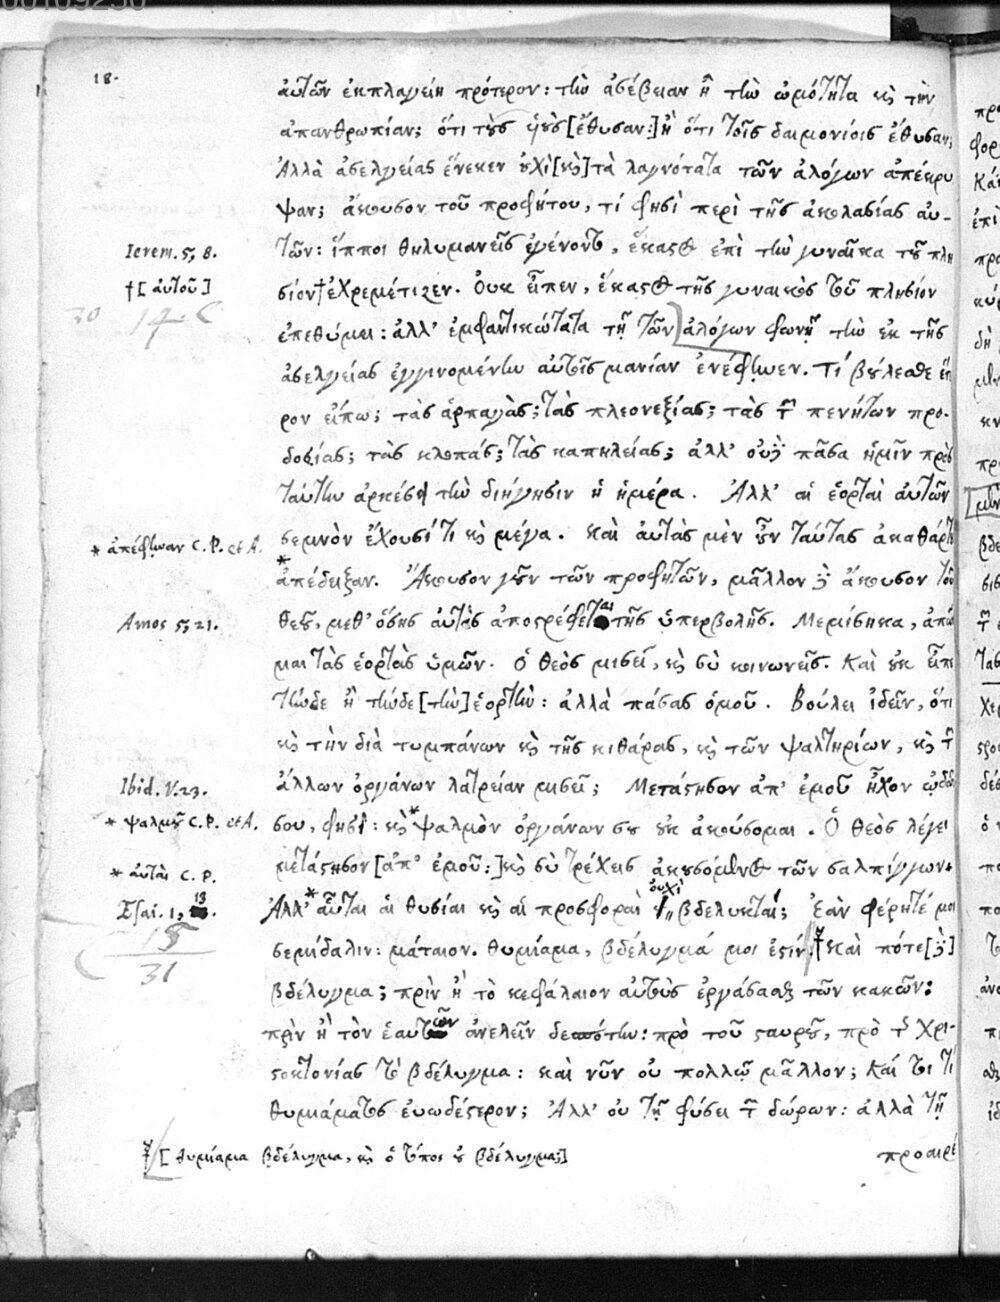 18.
αὐτῶν ἐκπλαγείη πρότερον: τὴν ἀσέβειαν ἢ τὴν ὠμότητα κὶ τὴν
ἀπανθρωπίαν; ὅτι τοὺς ὑιοὺς [ἔθυσαν:] ἢ ὅτι τοῖς δαιμονίοις ἔθυσαν;
Ἀλλὰ ἀσελγείας ἕνεκεν οὐχὶ [κὶ] τὰ λαγνότατα τῶν ἀλόγων ἀπέκρυ
ψαν; ἄκουσον τοῦ προφήτου, τί φησὶ περὶ τῆς ἀκολασίας αὐ-
Ierem. 5, 8.
τῶν: ἵπποι θηλυμανεῖς ἐγένοντο, ἕκαστος ἐπὶ τὴν γυναῖκα τοῦ πλη
† [αὐτοῦ]
σίον † ἐχρεμέτιζεν. Οὐκ εἶπεν, ἕκαστος τῆς γυναικὸς τοῦ πλησίον
30 146
ἐπεθύμει: ἀλλ' ἐμφαντικώτατα τῇ τῶν ἀλόγων φωνῇ τὴν ἐκ τῆς
ἀσελγείας ἐγγινομένην αὐτοῖς μανίαν ἐνέφηνεν. Τί βούλεσθε ἕτε
ρον εἴπω; τὰς ἁρπαγὰς; τὰς πλεονεξίας; τὰς τῶν πενήτων προ-
δοσίας; τὰς κλοπάς; τὰς καπηλείας; ἀλλ' οὐδὲ πᾶσα ἡμῖν πρὸς
ταύτην ἀρκέσει τὴν διήγησιν ἡ ἡμέρα. Ἀλλ' αἱ ἑορταὶ αὐτῶν
* ἀπέφηναν C.P. et A.
σεμνὸν ἔχουσί τι κὶ μέγα. Καὶ αὐτὰς μὲν οὖν ταύτας ἀκαθάρτους
* ἀπέδειξαν. Ἄκουσον γοῦν τῶν προφητῶν, μᾶλλον δὲ ἄκουσον τοῦ
Amos 5, 21.
θεοῦ, μεθ' ὅσης αὐτὰς ἀποστρέφεται τῆς ὑπερβολῆς. Μεμίσηκα, ἀπῶ
μαι τὰς ἑορτὰς ὑμῶν. Ὁ θεὸς μισεῖ, κὶ σὺ κοινωνεῖς. Καὶ οὐκ εἶπε
τήνδε ἢ τήνδε [τὴν] ἑορτήν: ἀλλὰ πάσας ὁμοῦ. Βούλει ἰδεῖν, ὅτι
κὶ τὴν διὰ τυμπάνων κὶ τῆς κιθάρας, κὶ τῶν ψαλτηρίων, κὶ τῶν
Ibid. V. 23.
ἄλλων ὀργάνων λατρείαν μισεῖ; Μετάστησον ἀπ' ἐμοῦ ἦχον ᾠδῶν
* ψαλμῶν C.P. et A.
σου, φησί: κὶ * ψαλμὸν ὀργάνων σου οὐκ ἀκούσομαι. Ὁ θεὸς λέγει
μετάστησον [ἀπ' ἐμοῦ:] κὶ σὺ τρέχεις ἀκουσόμενος τῶν σαλπίγγων;
* αὐταὶ C.P.
Esai. 1, 13.
Ἀλλ' * αὗται αἱ θυσίαι κὶ αἱ προσφοραὶ οὐχὶ βδελυκταί; Ἐὰν φέρητέ μοι
15
31
σεμίδαλιν: μάταιον. θυμίαμα, βδέλυγμά μοι ἐστίν. ‡ Καὶ πότε [δὲ]
βδέλυγμα; πρὶν ἢ τὸ κεφάλαιον αὐτοὺς ἐργάσασθαι τῶν κακῶν:
πρὶν ἢ τὸν ἑαυτῶν ἀνελεῖν δεσπότην: πρὸ τοῦ σταυροῦ, πρὸ τῆς Χρι-
στοκτονίας τὸ βδέλυγμα: καὶ νῦν οὐ πολλῷ μᾶλλον; Καί τοι τί
θυμιάματος εὐωδέστερον; Ἀλλ' οὐ τῇ φύσει τῶν δώρων: ἀλλὰ τῇ
‡ [θυμίαμα βδέλυγμα, κὶ ὁ τόπος οὐ βδέλυγμα;]
προαιρέ